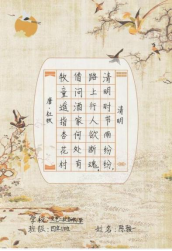 清明
清明时节雨纷纷,
路上行人欲断魂;
借问酒家何处有
牧童遥指杏花村
唐·杜牧
学校:
班级:
姓名:陈